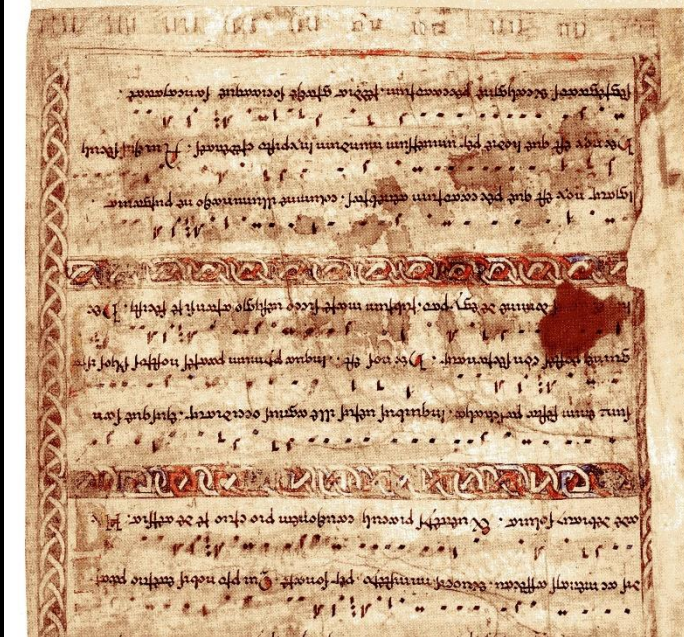 dis ac mentis affectu. et uocis ministerio. personare. Qui pro nobis eterno patri
ade debitum soluit. Et ueteris piaculi cautionem pio cruore detersit. Hec
sunt enim festa paschalia. in quibus uerus ille agnus occiditur. eiusque san
guine postes consecrantur. Hec nox est. in qua primum patres nostros filios isra
domine de egypto. rubrum mare sicco uestigio transire fecisti. Hec
igitur nox est que peccatorum tenebras. columne illuminatione purgauit
Hec nox est que hodie per uniuersum mundum in christo credentes. A uitiis seculi
segregatos et caligine peccatorum. reddit gratie sociatque sanctitati.